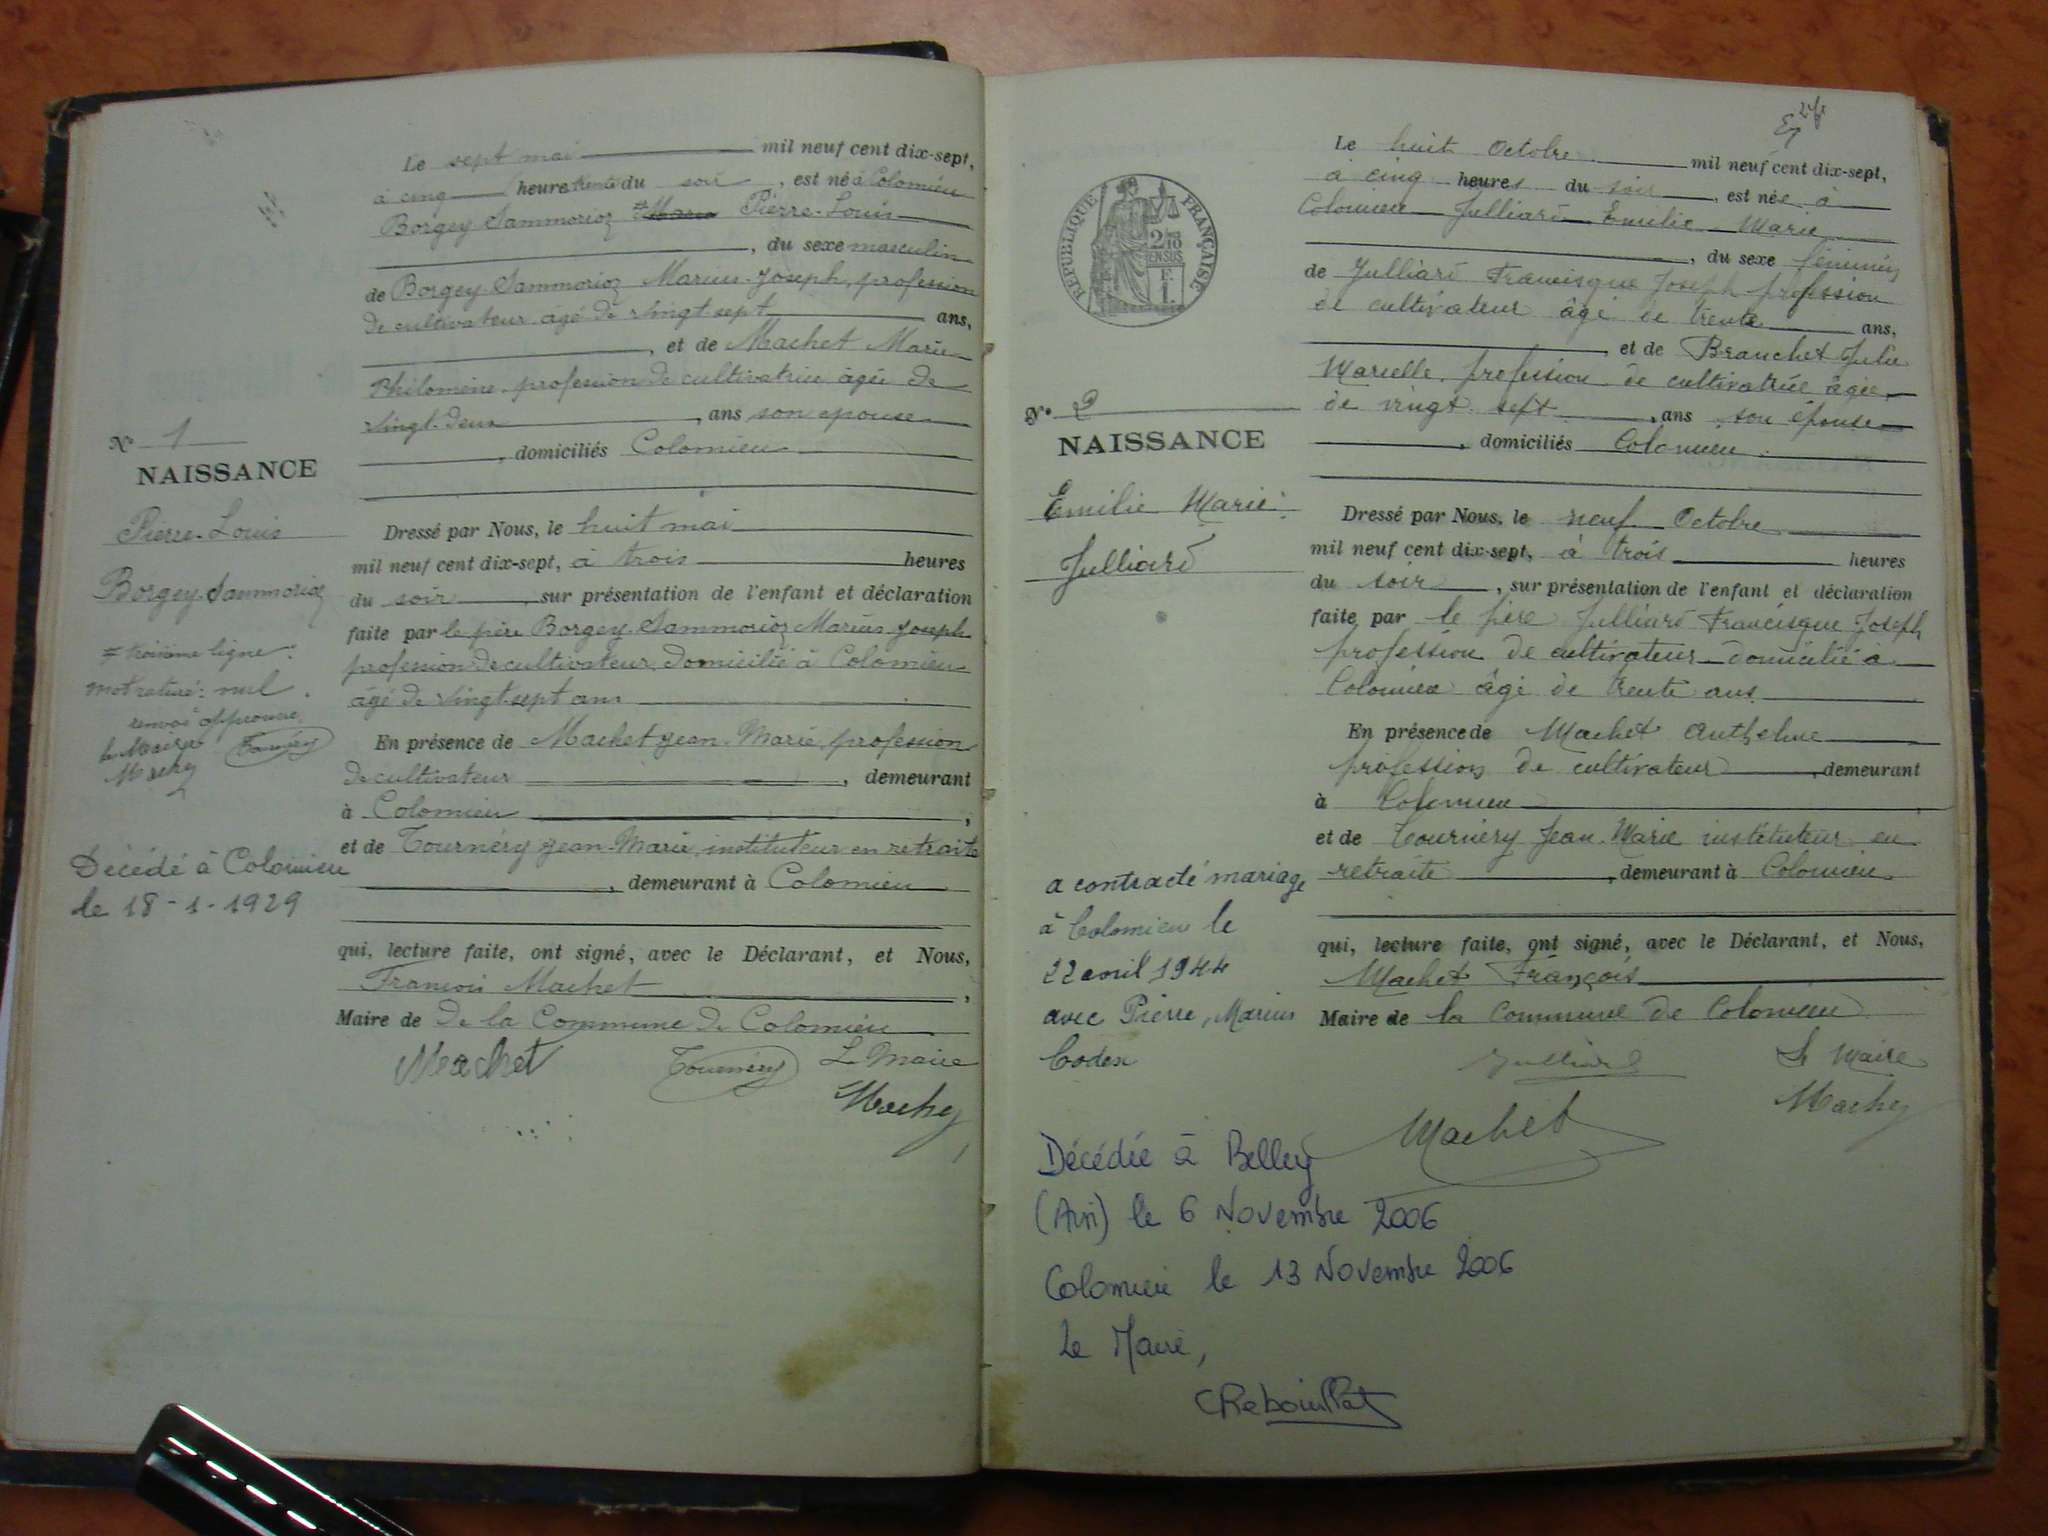 Le sept mai mil neuf cent dix-sept,
à cinq heure trente du soir, est né à Colomieu
Borgey-Sammorioz # Marie Pierre-Louis
, du sexe masculin
de Borgey-Sammorioz Marius-Joseph, profession
de cultivateur âgé de vingt sept ans,
, et de Machet Marie
Philomène profession de cultivatrice âgée de
vingt-deux, ans son épouse
, domiciliés Colomieu
N° 1
NAISSANCE
Pierre-Louis
Borgey-Sammorioz
# troisième ligne:
mot raturé: nul.
renvoi approuvé
le Maire Tournéry
Machey
Décédé à Colomieu
le 18-1-1929
Dressé par Nous, le huit mai
mil neuf cent dix-sept, à trois heures
du soir, sur présentation de l'enfant et déclaration
faite par le père Borgey-Sammorioz Marius Joseph
profession de cultivateur, domicilié à Colomieu
âgé de vingt-sept ans
En présence de Machet Jean-Marie, profession
de cultivateur, demeurant
à Colomieu,
et de Tournéry Jean-Marie, instituteur en retraite
, demeurant à Colomieu
qui, lecture faite, ont signé, avec le Déclarant, et Nous,
François Machet,
Maire de de la Commune de Colomieu
Machet Tournéry Le Maire
Machey
Le huit Octobre mil neuf cent dix-sept,
à cinq heures du soir, est née à
Colomieu Julliard Emilie Marie
, du sexe féminin
de Julliard Francisque Joseph profession
de cultivateur âgé de trente ans,
, et de Branchet Julie
Marielle, profession de cultivatrice âgée
de vingt sept, ans son épouse
, domiciliés Colomieu
RÉPUBLIQUE FRANÇAISE
2/10 EN SUS
F. 1.
N° 2
NAISSANCE
Emilie Marie
Julliard
Dressé par Nous, le neuf Octobre
mil neuf cent dix-sept, à trois heures
du soir, sur présentation de l'enfant et déclaration
faite par le père Julliard Francisque Joseph
profession de cultivateur domicilié à
Colomieu âgé de trente ans
En présence de Machet Anthelme
profession de cultivateur, demeurant
à Colomieu
et de Tournéry Jean-Marie instituteur en
retraite, demeurant à Colomieu
qui, lecture faite, ont signé, avec le Déclarant, et Nous,
Machet François
Maire de la Commune de Colomieu
Julliard Le Maire
Machet Machey
a contracté mariage
à Colomieu le
22 avril 1944
avec Pierre, Marius
Codex
Décédée à Belley
(Ain) le 6 Novembre 2006
Colomieu le 13 Novembre 2006
Le Maire,
CRebouillat